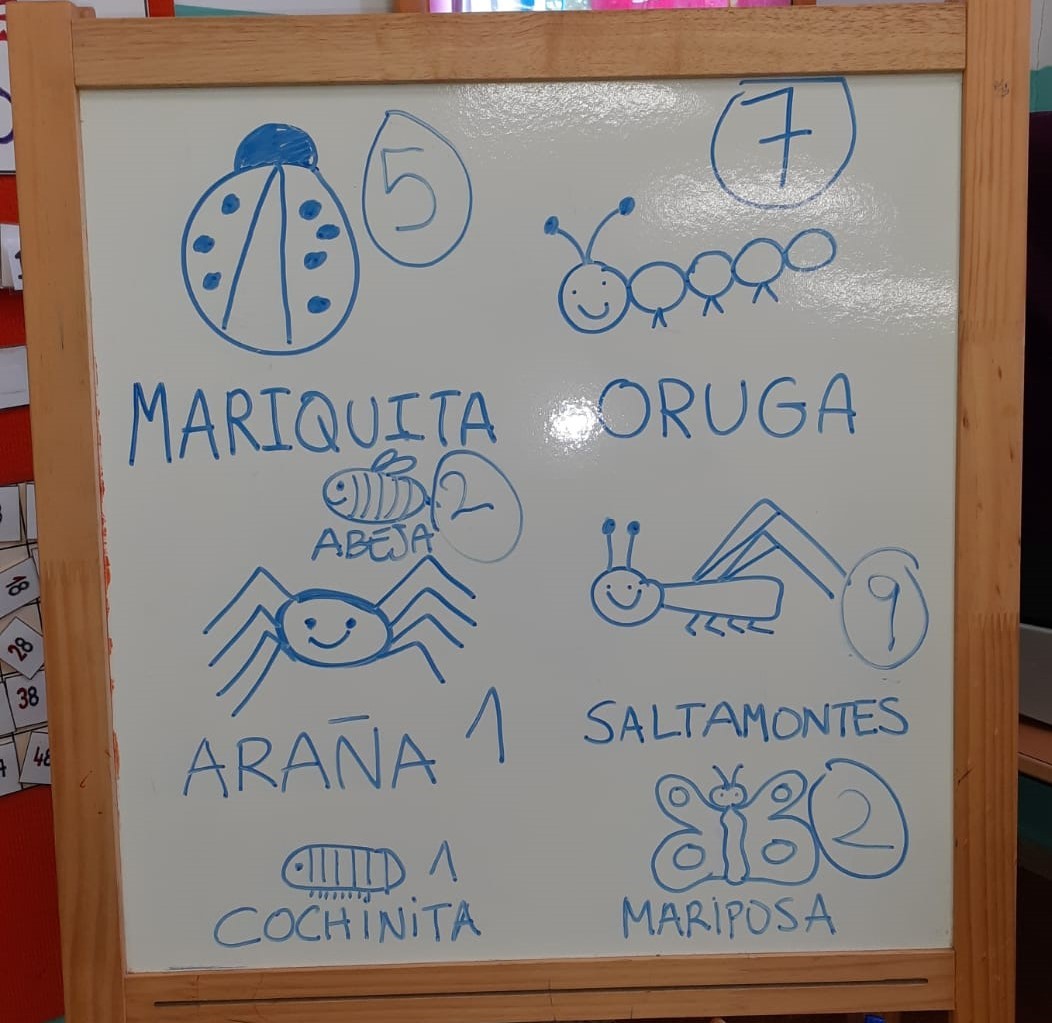 5
7
MARIQUITA
ORUGA
2
ABEJA
9
ARAÑA 1
SALTAMONTES
2
1
COCHINITA
MARIPOSA
28
38
48